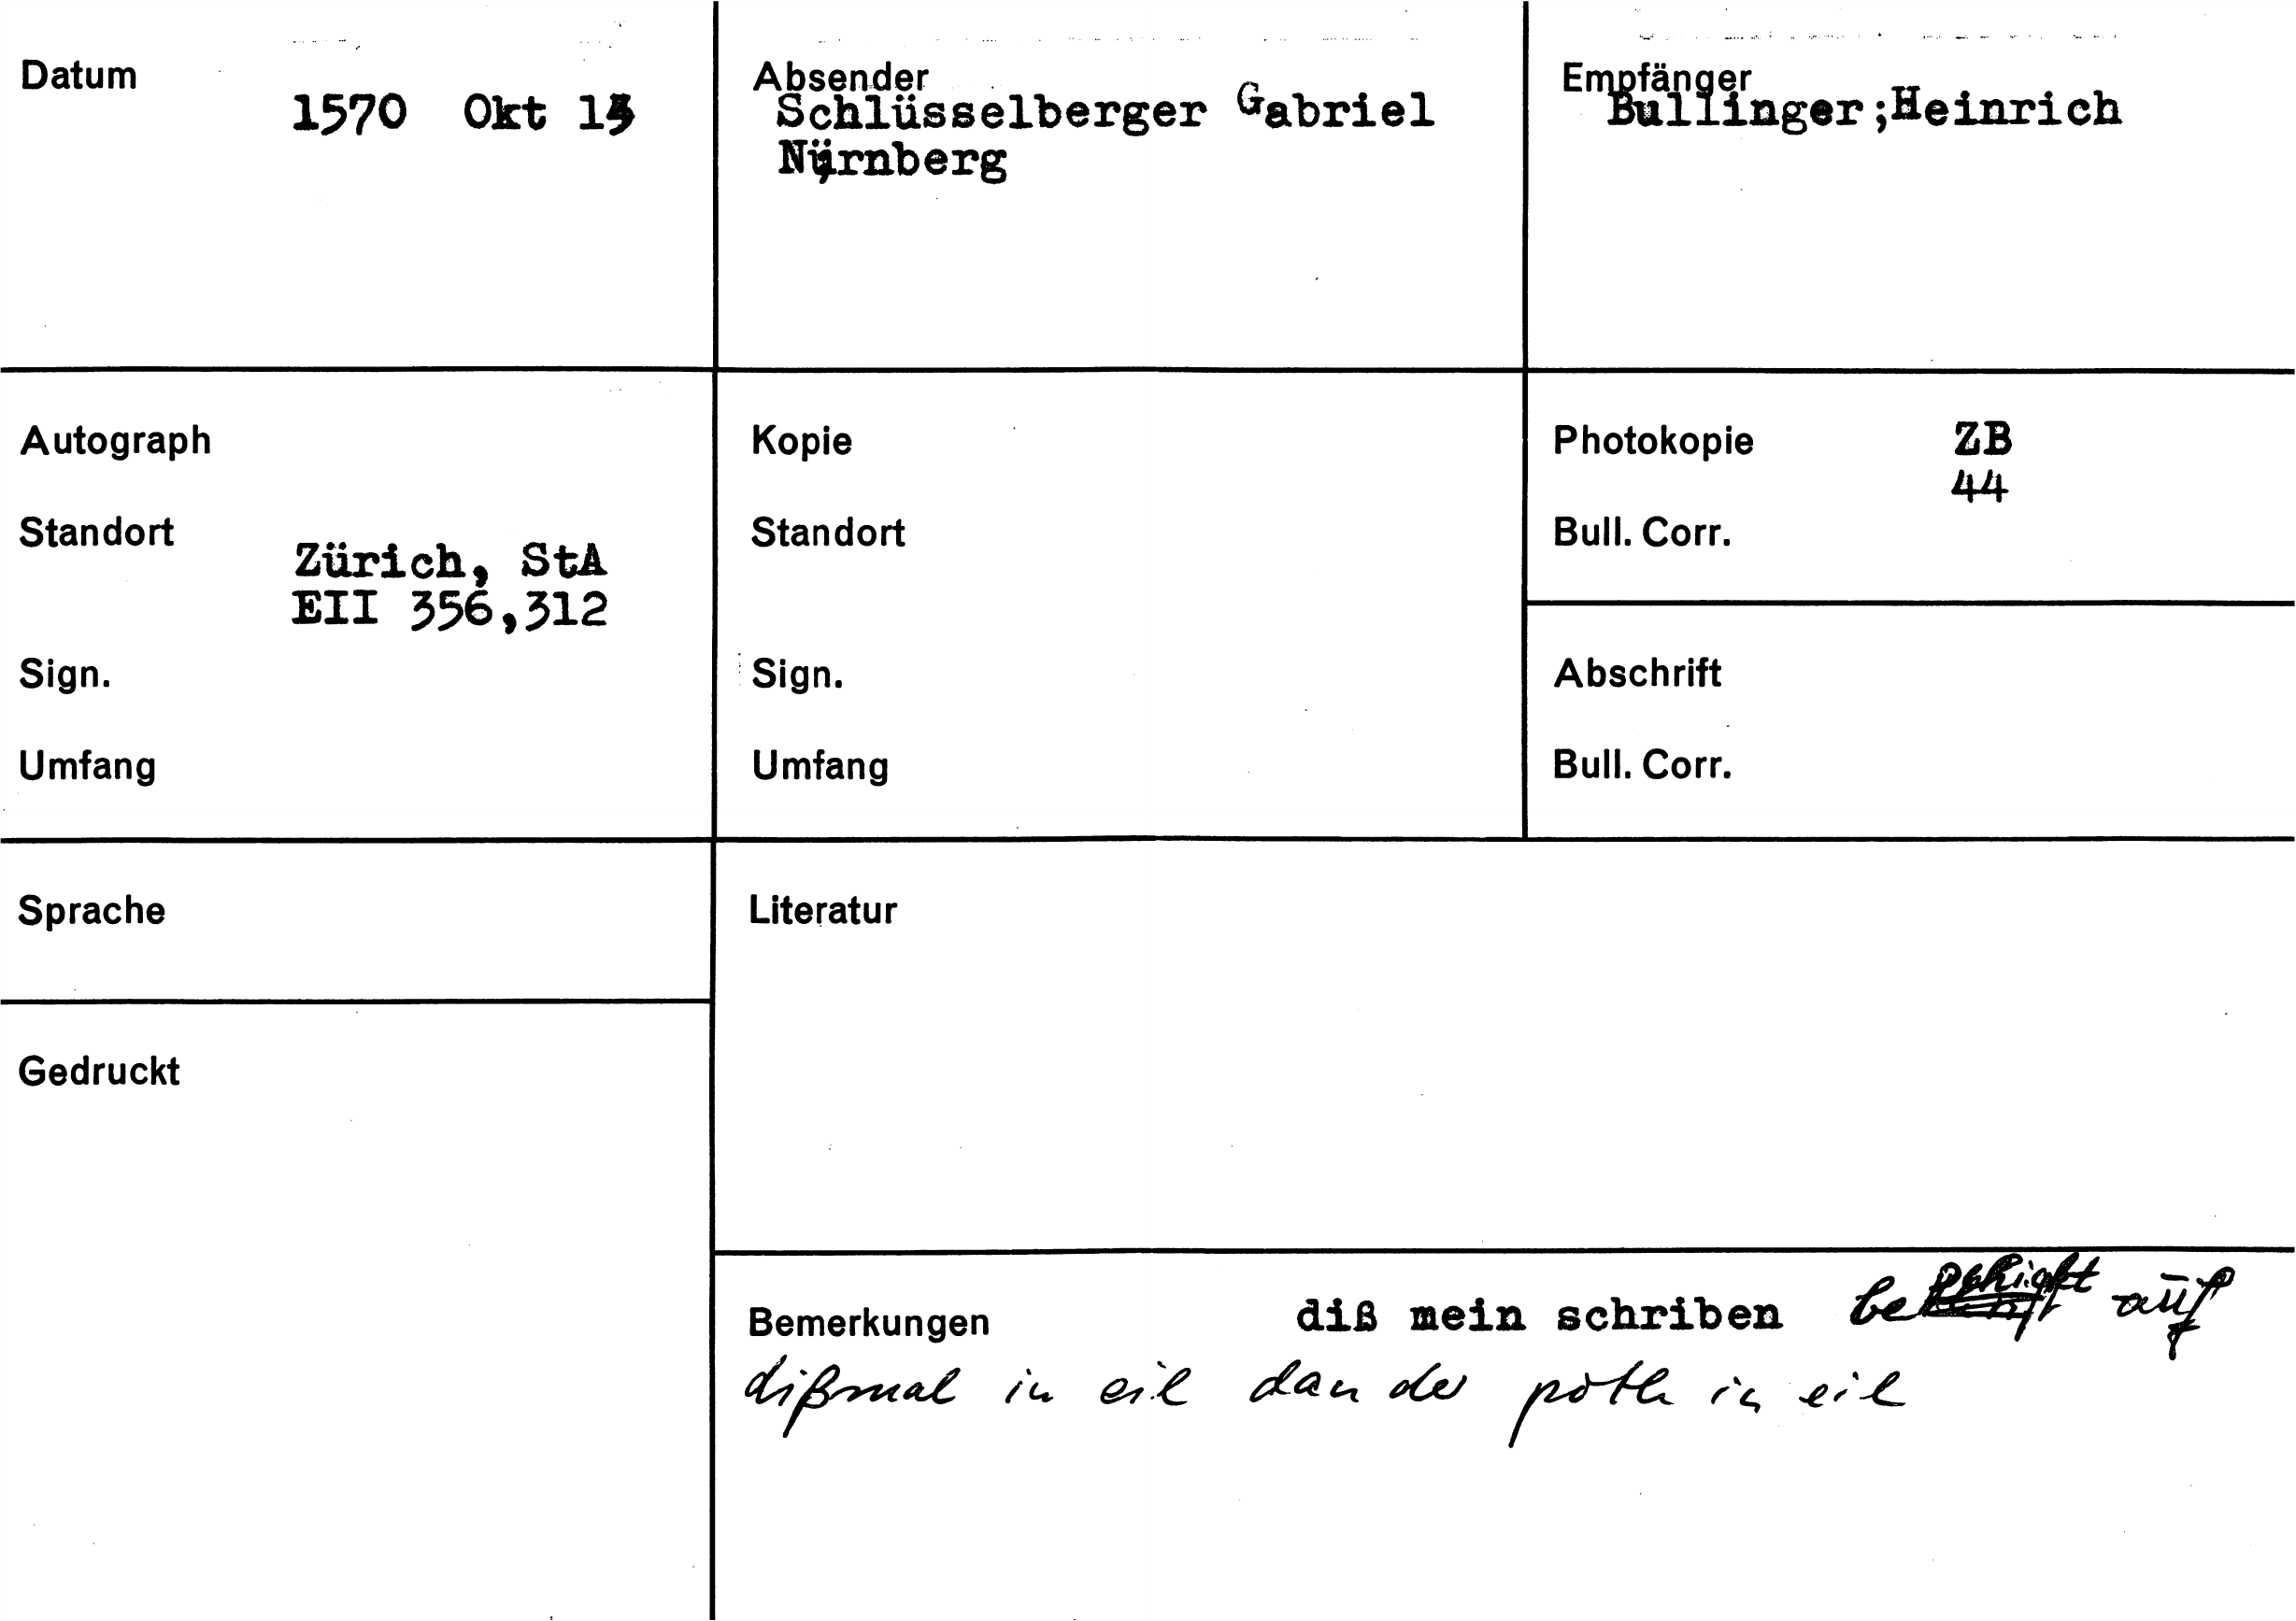 Datum
1570 Okt 13
Absender
Schlüsselberger Gabriel
Nürnberg
Empfänger
Bullinger;Heinrich
Autograph
Standort
Zürich, StA
EII 356,312
Sign.
Umfang
Kopie
Standort
Sign.
Umfang
Photokopie ZB
44
Bull. Corr.
Abschrift
Bull. Corr.
Sprache
Gedruckt
Literatur
Bemerkungen diß mein schriben auf
dißmal in eil dan der poth in eil